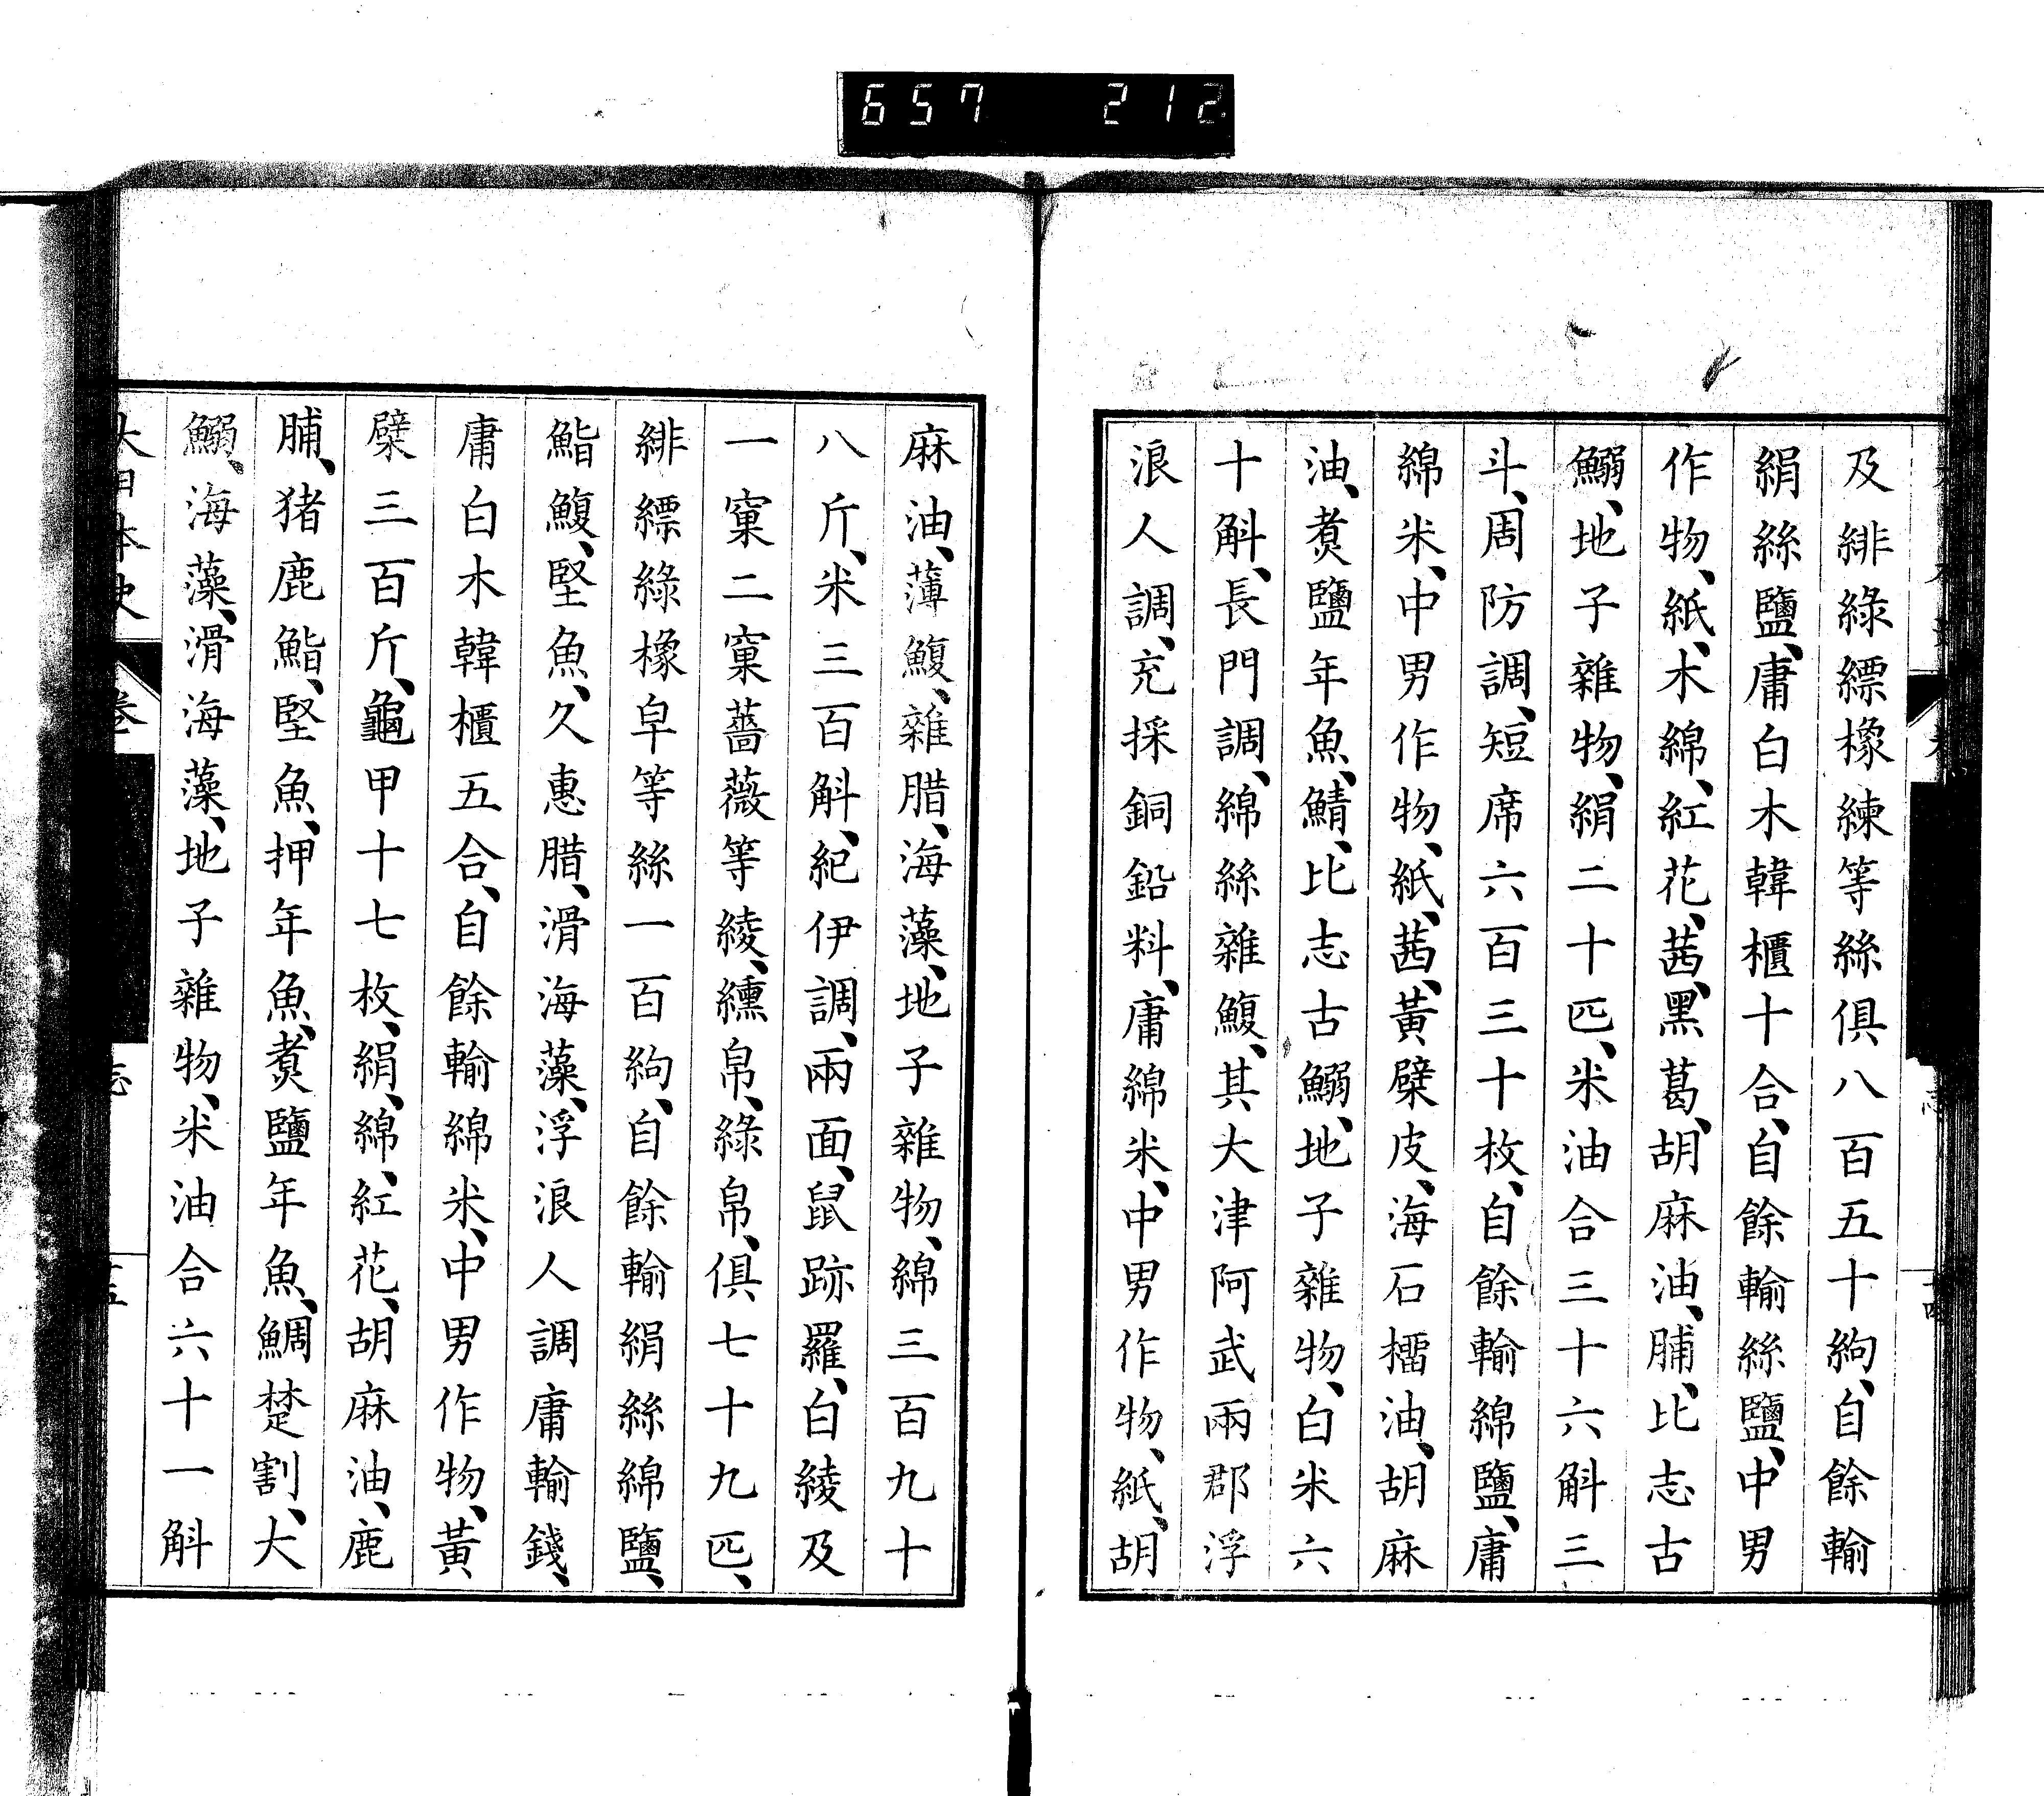 657 212
及緋綠縹橡練等絲俱八百五十絇、自餘輸
絹絲鹽、庸白木韓櫃十合、自餘輸絲鹽、中男
作物、紙、木綿、紅花、茜、黑葛、胡麻油、脯、比志古
鰯、地子雜物、絹二十匹、米油合三十六斛三
斗、周防調、短席六百三十枚、自餘輸綿鹽、庸
綿米、中男作物、紙、茜、黃檗皮、海石榴油、胡麻
油、煑鹽年魚、鯖、比志古鰯、地子雜物、白米六
十斛、長門調、綿絲雜鰒、其大津阿武兩郡浮
浪人調、充採銅鉛料、庸綿米、中男作物、紙、胡
麻油、薄鰒、雜腊、海藻、地子雜物、綿三百九十
八斤、米三百斛、紀伊調、兩面、鼠跡羅、白綾及
一窠二窠薔薇等綾、纁帛、綠帛、俱七十九匹、
緋縹綠橡皁等絲一百絇、自餘輸絹絲綿鹽、
鮨鰒、堅魚、久惠腊、滑海藻、浮浪人調庸輸錢、
庸白木韓櫃五合、自餘輸綿米、中男作物、黃
檗三百斤、龜甲十七枚、絹、綿、紅花、胡麻油、鹿
脯、猪鹿鮨、堅魚、押年魚、煑鹽年魚、鯛楚割、大
鰯、海藻、滑海藻、地子雜物、米油合六十一斛
大日本史 卷 志